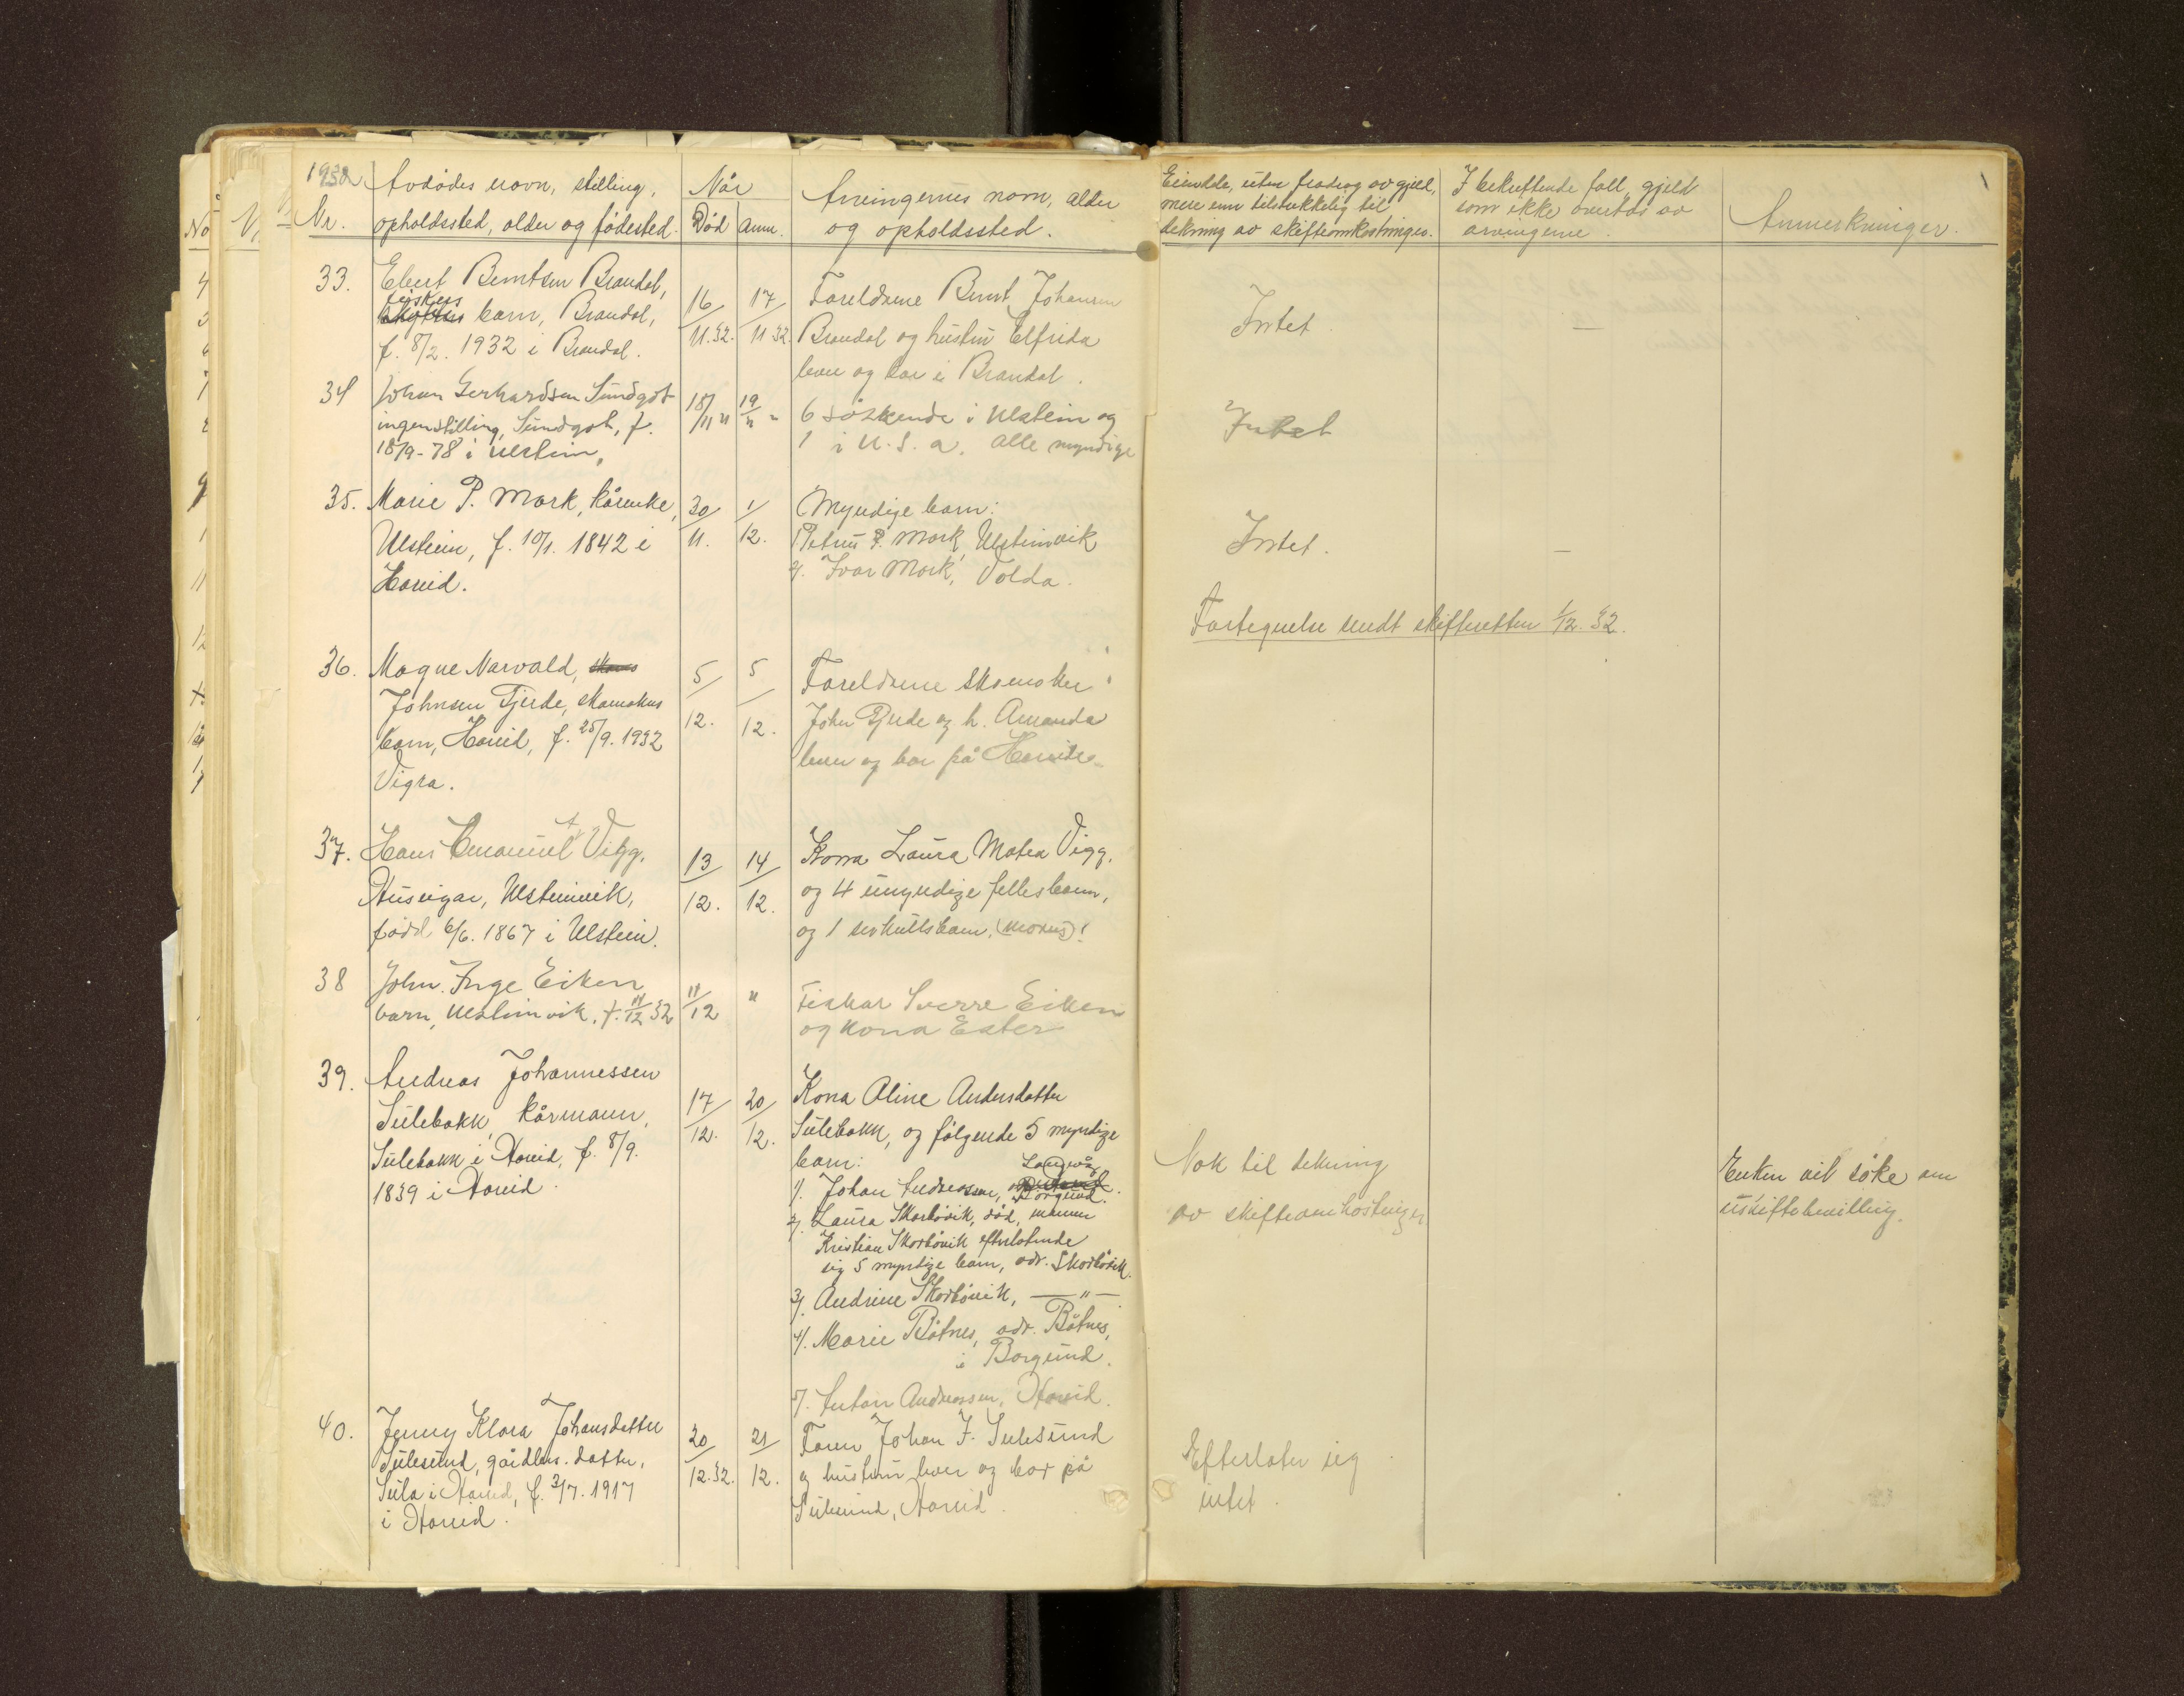 1932
Nr.
Avdödes navn, stilling,
opholdssted, alder og födested.
Når
Död Anm.
Arvingenes navn, alder
og opholdssted.
Eiendele, uten fradrag av gjeld,
mere enn tilstrekkelig til
dekning av skifteomkostninger.
I bekreftende fall, gjeld
som ikke overtas av
arvingerne.
Anmerkninger.
33.
Ebert Berntsen Brandal,
fiskers
barn, Brandal,
f. 8/2. 1932 i Brandal.
16/11.32. 17/11 32.
Foreldrene Bernt Johansen
Brandal og hustru Elfrida
lever og bor i Brandal.
Intet.
—
34
Johan Gerhardsen Sundgot
ingen stilling, Sundgot, f.
18/9-78 i Ulstein,
18/11 " 19/11 "
6 söskende i Ulstein og
1 i U.S.a. alle myndige
Intet
35.
Marie P. Mork, kårenke,
Ulstein, f. 10/1. 1842 i
Hareid.
30/11. 1/12.
Myndige barn:
1) Petrus P. Mork, Ulsteinvik
2). Ivar Mork, Volda.
Intet.
—
Fortegnelse sendt skifteretten 1/12. 32.
36.
Magne Narvald,
Johnsen Gjerde, skomakers
barn, Hareid, f. 25/9. 1932
Vigra.
5/12. 5/12.
Foreldrene skomaker
John Gjerde og h. Amanda
lever og bor på Hareid.
37.
Hans Emanuel Vigg.
Huseigar, Ulsteinvik,
född 6/6. 1867 i Ulstein.
13/12. 14/12.
Kona Laura Matea Vigg.
og 4 umyndige felles barn,
og 1 serkullsbarn, (morens)!
38
John Inge Eiken
barn, Ulsteinvik, f. 11/12 32
11/12 "
Fiskar Sverre Eiken
og kona Ester
39.
Andreas Johannessen
Sulebakk, kårmann,
Sulebakk i Hareid, f. 8/9.
1839 i Hareid.
17/12. 20/12.
Kona Oline Andersdatter
Sulebakk, og fölgende 5 myndige
barn:
Langevåg
1). Johan Andreassen, Borgund.
2) Laura Skarbövik, död, mannen
Kristian Skarbövik efterlatende
sig 5 myndige barn, adr. Skarbövik.
3). Andrine Skarbövik, —"—
4). Marie Båtnes, adr. Båtnes,
i Borgund.
5). Anton Andreassen, Hareid.
Nok til dekning
av skifteomkostninger.
Enken vil söke om
uskiftebevilling.
40.
Jenny Klara Johansdatter
Sulesund, gårdbr. datter,
Sula i Hareid, f. 3/7. 1917
i Hareid.
20/12.32. 21/12.
Faren Johan J. Sulesund
og hustru lever og bor på
Sulesund, Hareid.
Efterlater sig
intet.